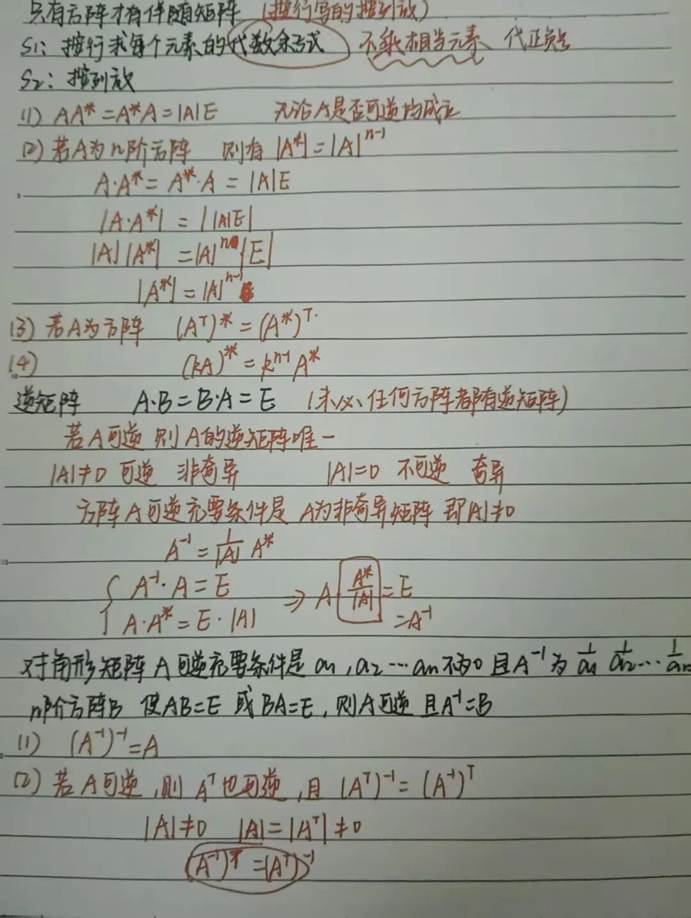 只有方阵才有伴随矩阵 (按行写的按列放)
S1: 按行求每个元素的代数余子式 不乘相当元素 代正负号
S2: 按列放
(1) AA* = A*A = |A|E 无论A是否可逆均成立
(2) 若A为n阶方阵 则有 |A*| = |A|ⁿ⁻¹
A·A* = A*·A = |A|E
|A·A*| = ||A|E|
|A||A*| = |A|ⁿ|E|
|A*| = |A|ⁿ⁻¹
(3) 若A为方阵 (Aᵀ)* = (A*)ᵀ.
(4) (kA)* = kⁿ⁻¹A*
逆矩阵 A·B = B·A = E (未必、任何方阵都有逆矩阵)
若A可逆 则A的逆矩阵唯一
|A|≠0 可逆 非奇异 |A|=0 不可逆 奇异
方阵A可逆充要条件是 A为非奇异矩阵 即|A|≠0
A⁻¹ = 1/|A| A*
{ A⁻¹·A = E
A·A* = E·|A| ⇒ A· A*/|A| = E
= A⁻¹
对角形矩阵A可逆充要条件是 a₁, a₂ ··· aₙ不为0 且A⁻¹为 1/a₁ 1/a₂ ··· 1/aₙ
n阶方阵B 使AB=E 或 BA=E, 则A可逆 且A⁻¹=B
(1) (A⁻¹)⁻¹ = A
(2) 若A可逆, 则 Aᵀ也可逆, 且 (Aᵀ)⁻¹ = (A⁻¹)ᵀ
|A|≠0 |A|=|Aᵀ|≠0
(A⁻¹)ᵀ = (Aᵀ)⁻¹